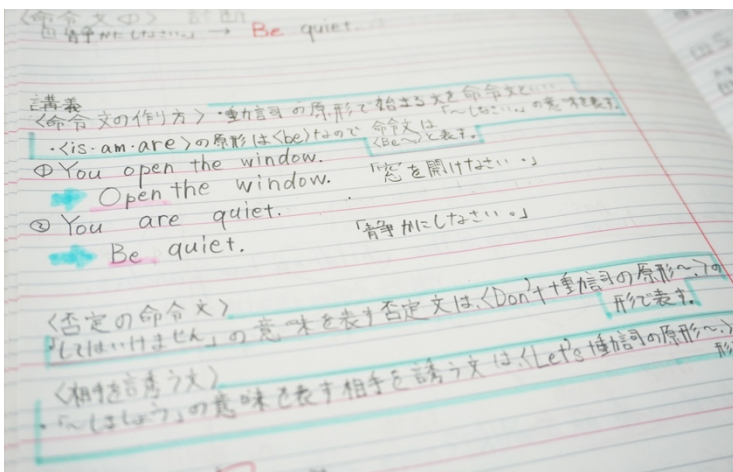 〈命令文の〉 診断
「静かにしなさい。」 → Be quiet.
講義
〈命令文の作り方〉・動詞の原形で始まる文を命令文といい、
「〜しなさい。」の意味を表す。
・〈is・am・are〉の原形は〈be〉なので 命令文は
〈Be〜〉と表す。
① You open the window.
Open the window. 「窓を開けなさい。」
② You are quiet.
Be quiet. 「静かにしなさい。」
〈否定の命令文〉
「してはいけません」の意味を表す否定文は、〈Don't+動詞の原形〜.〉の
形で表す。
〈相手を誘う文〉
・「〜しましょう」の意味を表す相手を誘う文は、〈Let's 動詞の原形〜.〉
形